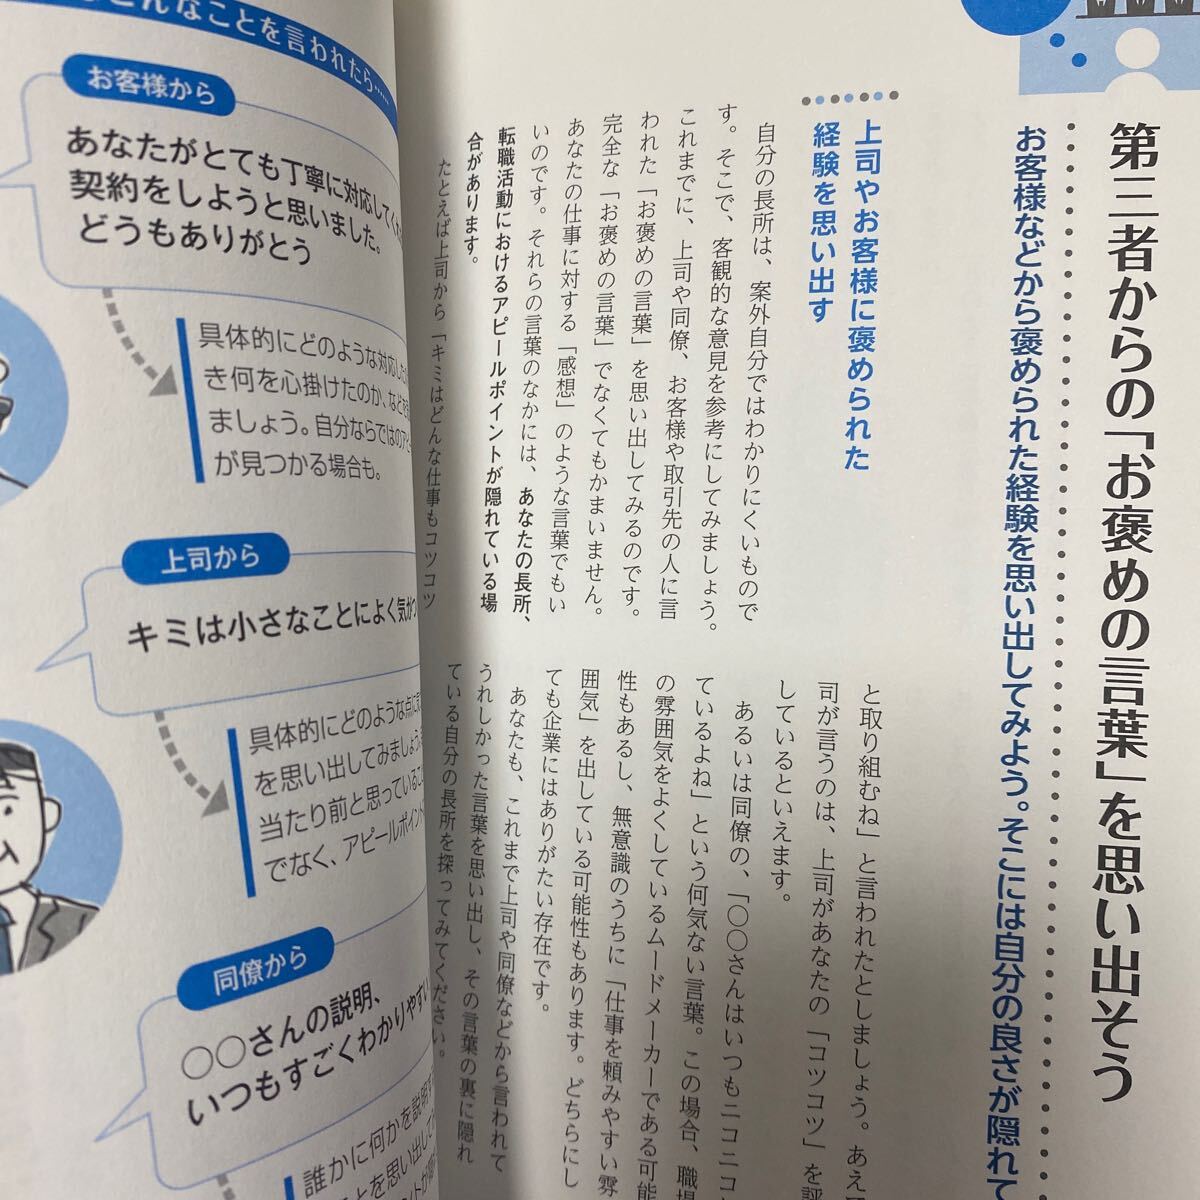 第三者からの「お褒めの言葉」を思い出そう
お客様などから褒められた経験を思い出してみよう。そこには自分の良さが隠れて
上司やお客様に褒められた
経験を思い出す
自分の長所は、案外自分ではわかりにくいもので
す。そこで、客観的な意見を参考にしてみましょう。
これまでに、上司や同僚、お客様や取引先の人に言
われた「お褒めの言葉」を思い出してみるのです。
完全な「お褒めの言葉」でなくてもかまいません。
あなたの仕事に対する「感想」のような言葉でもい
いのです。それらの言葉のなかには、あなたの長所、
転職活動におけるアピールポイントが隠れている場
合があります。
たとえば上司から「キミはどんな仕事もコツコツ
と取り組むね」と言われたとしましょう。あえて
司が言うのは、上司があなたの「コツコツ」を評
しているといえます。
あるいは同僚の、「〇〇さんはいつもニコニコ
ているよね」という何気ない言葉。この場合、職場
の雰囲気をよくしているムードメーカーである可能
性もあるし、無意識のうちに「仕事を頼みやすい雰
囲気」を出している可能性もあります。どちらにし
ても企業にはありがたい存在です。
あなたも、これまで上司や同僚などから言われて
うれしかった言葉を思い出し、その言葉の裏に隠れ
ている自分の長所を探ってみてください。
こんなことを言われたら……
お客様から
あなたがとても丁寧に対応してくた
契約をしようと思いました。
どうもありがとう
具体的にどのような対応した
き何を心掛けたのか、などを
ましょう。自分ならではのアピ
が見つかる場合も。
上司から
キミは小さなことによく気がつ
具体的にどのような点に
を思い出してみましょう
当たり前と思っている
でなく、アピールポイント
同僚から
〇〇さんの説明、
いつもすごくわかりやすい
誰かに何かを説明す
ことを思い出して
ントが